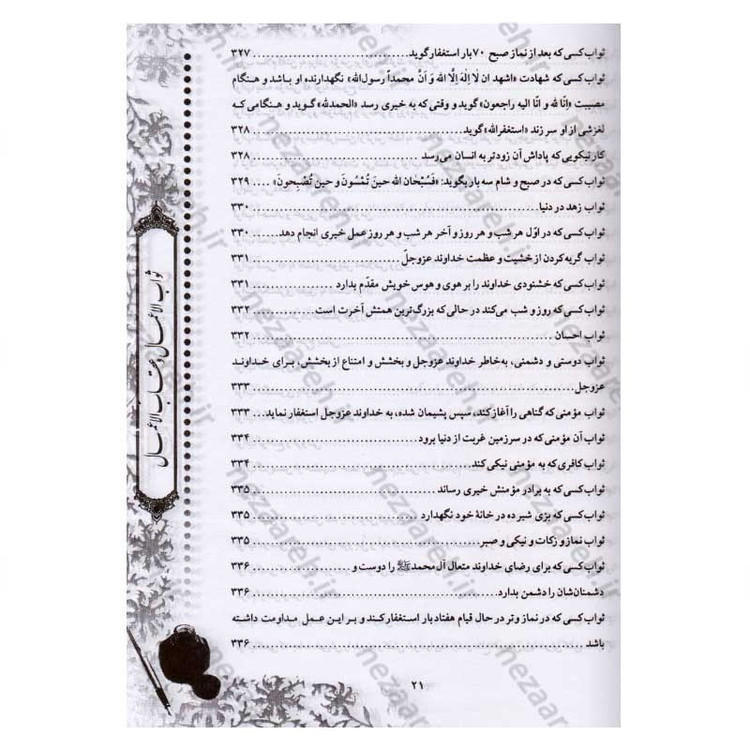 ثواب کسی که بعد از نماز صبح ۷۰ بار استغفار گوید ۳۲۷
ثواب کسی که شهادت «اشهد ان لَا إلٰهَ اِلَّا الله وَ اَنَّ محمداً رسول‌الله» نگهدارنده او باشد و هنگام
مصیبت «إنّا لله و انّا الیه راجعون» گوید و وقتی که به خیری رسد «الحمدلله» گوید و هنگامی که
لغزشی از او سر زند «استغفرالله» گوید ۳۲۸
کار نیکویی که پاداش آن زودتر به انسان می‌رسد ۳۲۸
ثواب کسی که در صبح و شام سه بار بگوید: «فَسُبْحَان الله حینَ تُمْسُونَ و حین تُصْبِحونَ» ۳۲۹
ثواب زهد در دنیا ۳۳۰
ثواب کسی که در اوّل هر شب و هر روز و آخر هر شب و هر روز عمل خیری انجام دهد ۳۳۰
ثواب گریه کردن از خشیت و عظمت خداوند عزوجلّ ۳۳۱
ثواب کسی که خشنودی خداوند را بر هوی و هوس خویش مقدّم بدارد ۳۳۱
ثواب کسی که روز و شب می‌کند در حالی که بزرگ‌ترین همتش آخرت است ۳۳۲
ثواب احسان ۳۳۲
ثواب دوستی و دشمنی، به‌خاطر خداوند عزوجل و بخشش و امتناع از بخشش، برای خداوند
عزوجل ۳۳۳
ثواب مؤمنی که گناهی را آغاز کند، سپس پشیمان شده، به خداوند عزوجل استغفار نماید ۳۳۳
ثواب آن مؤمنی که در سرزمین غربت از دنیا برود ۳۳۴
ثواب کافری که به مؤمنی نیکی کند ۳۳۴
ثواب کسی که به برادر مؤمنش خیری رساند ۳۳۵
ثواب کسی که بزی شیر ده در خانهٔ خود نگهدارد ۳۳۵
ثواب نماز و زکات و نیکی و صبر ۳۳۵
ثواب کسی که برای رضای خداوند متعال آل محمد ﷺ را دوست و ۳۳۶
دشمنان‌شان را دشمن بدارد
ثواب کسی که در نماز وتر در حال قیام هفتاد بار استغفار کند و بر این عمل مداومت داشته
باشد ۳۳۶
۲۱
ثواب الاعمال و عقاب الاعمال
nezaareh.ir